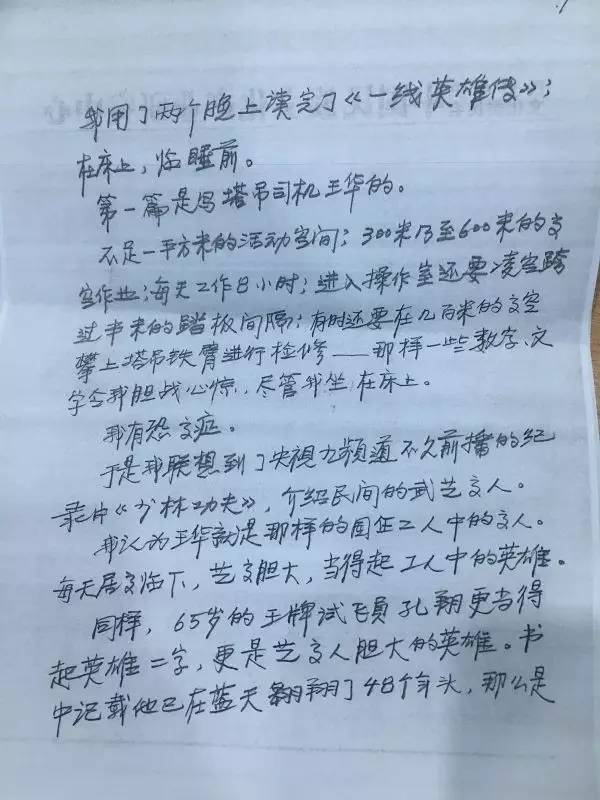 我用了两个晚上读完了《一线英雄传》;
在床上,临睡前。
第一篇是写塔吊司机王华的。
不足一平方米的活动空间;300米乃至600米的高
空作业;每天工作8小时;进入操作室还要凌空跨
过半米的踏板间隔;有时还要在几百米的高空
攀上塔吊铁臂进行检修——那样一些数字、文
字令我胆战心惊,尽管我坐在床上。
我有恐高症。
于是我联想到了央视九频道不久前播的纪
录片《少林功夫》,介绍民间的武艺高人。
我认为王华就是那样的国企工人中的高人。
每天居高临下,艺高胆大,当得起工人中的英雄。
同样,65岁的王牌试飞员孔翔更当得
起英雄二字,更是艺高人胆大的英雄。书
中记载他已在蓝天翱翔了48个年头,那么是